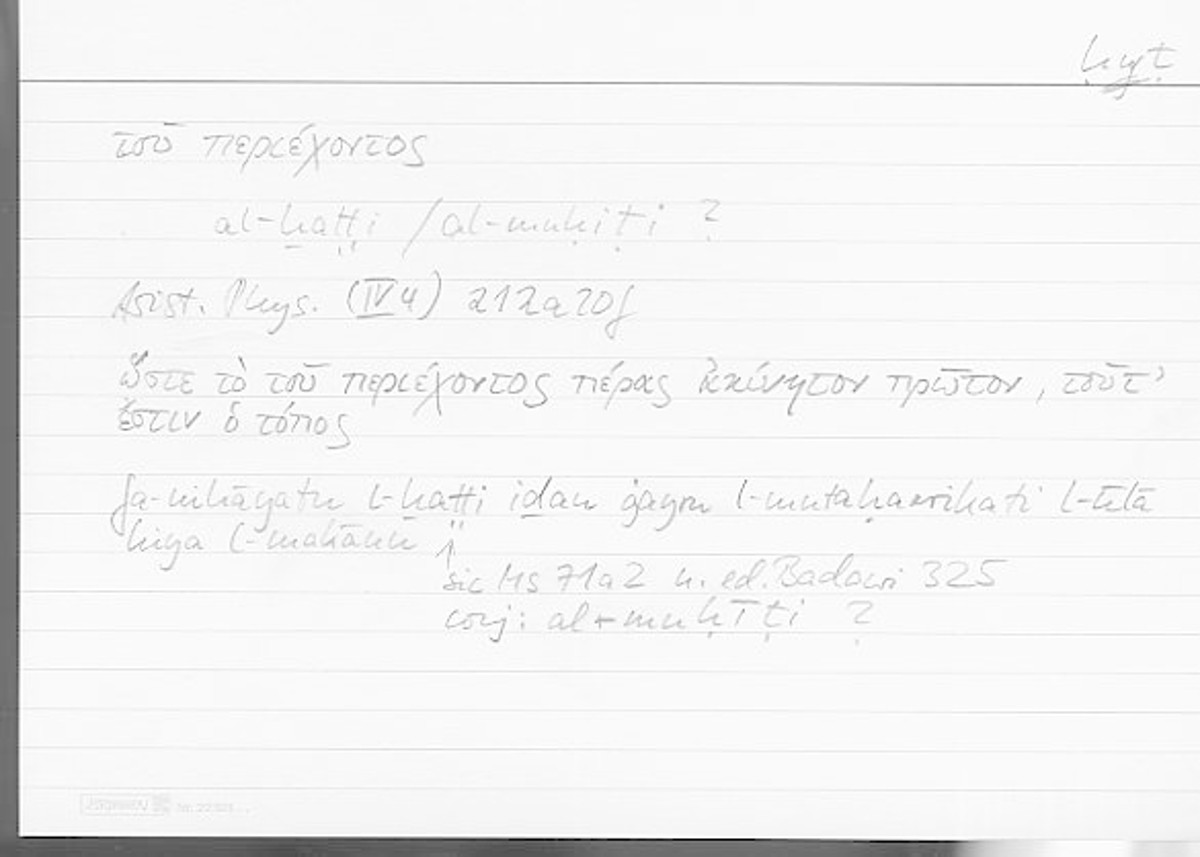 ḥyṭ
τοῦ περιέχοντος
al-ḫaṭṭi / al-muḥiṭi ?
Arist. Phys. (IV 4) 212a20f
ὥστε τὸ τοῦ περιέχοντος πέρας ἀκίνητον πρῶτον, τοῦτ'
ἔστιν ὁ τόπος
fa-nihāyatu l-ḫaṭṭi iḏan ġayru l-mutaḥarrikati l-ūlā
hiya l-makānu
sic Ms 71a2 u. ed. Badawi 325
conj: al-muḥīṭi ?